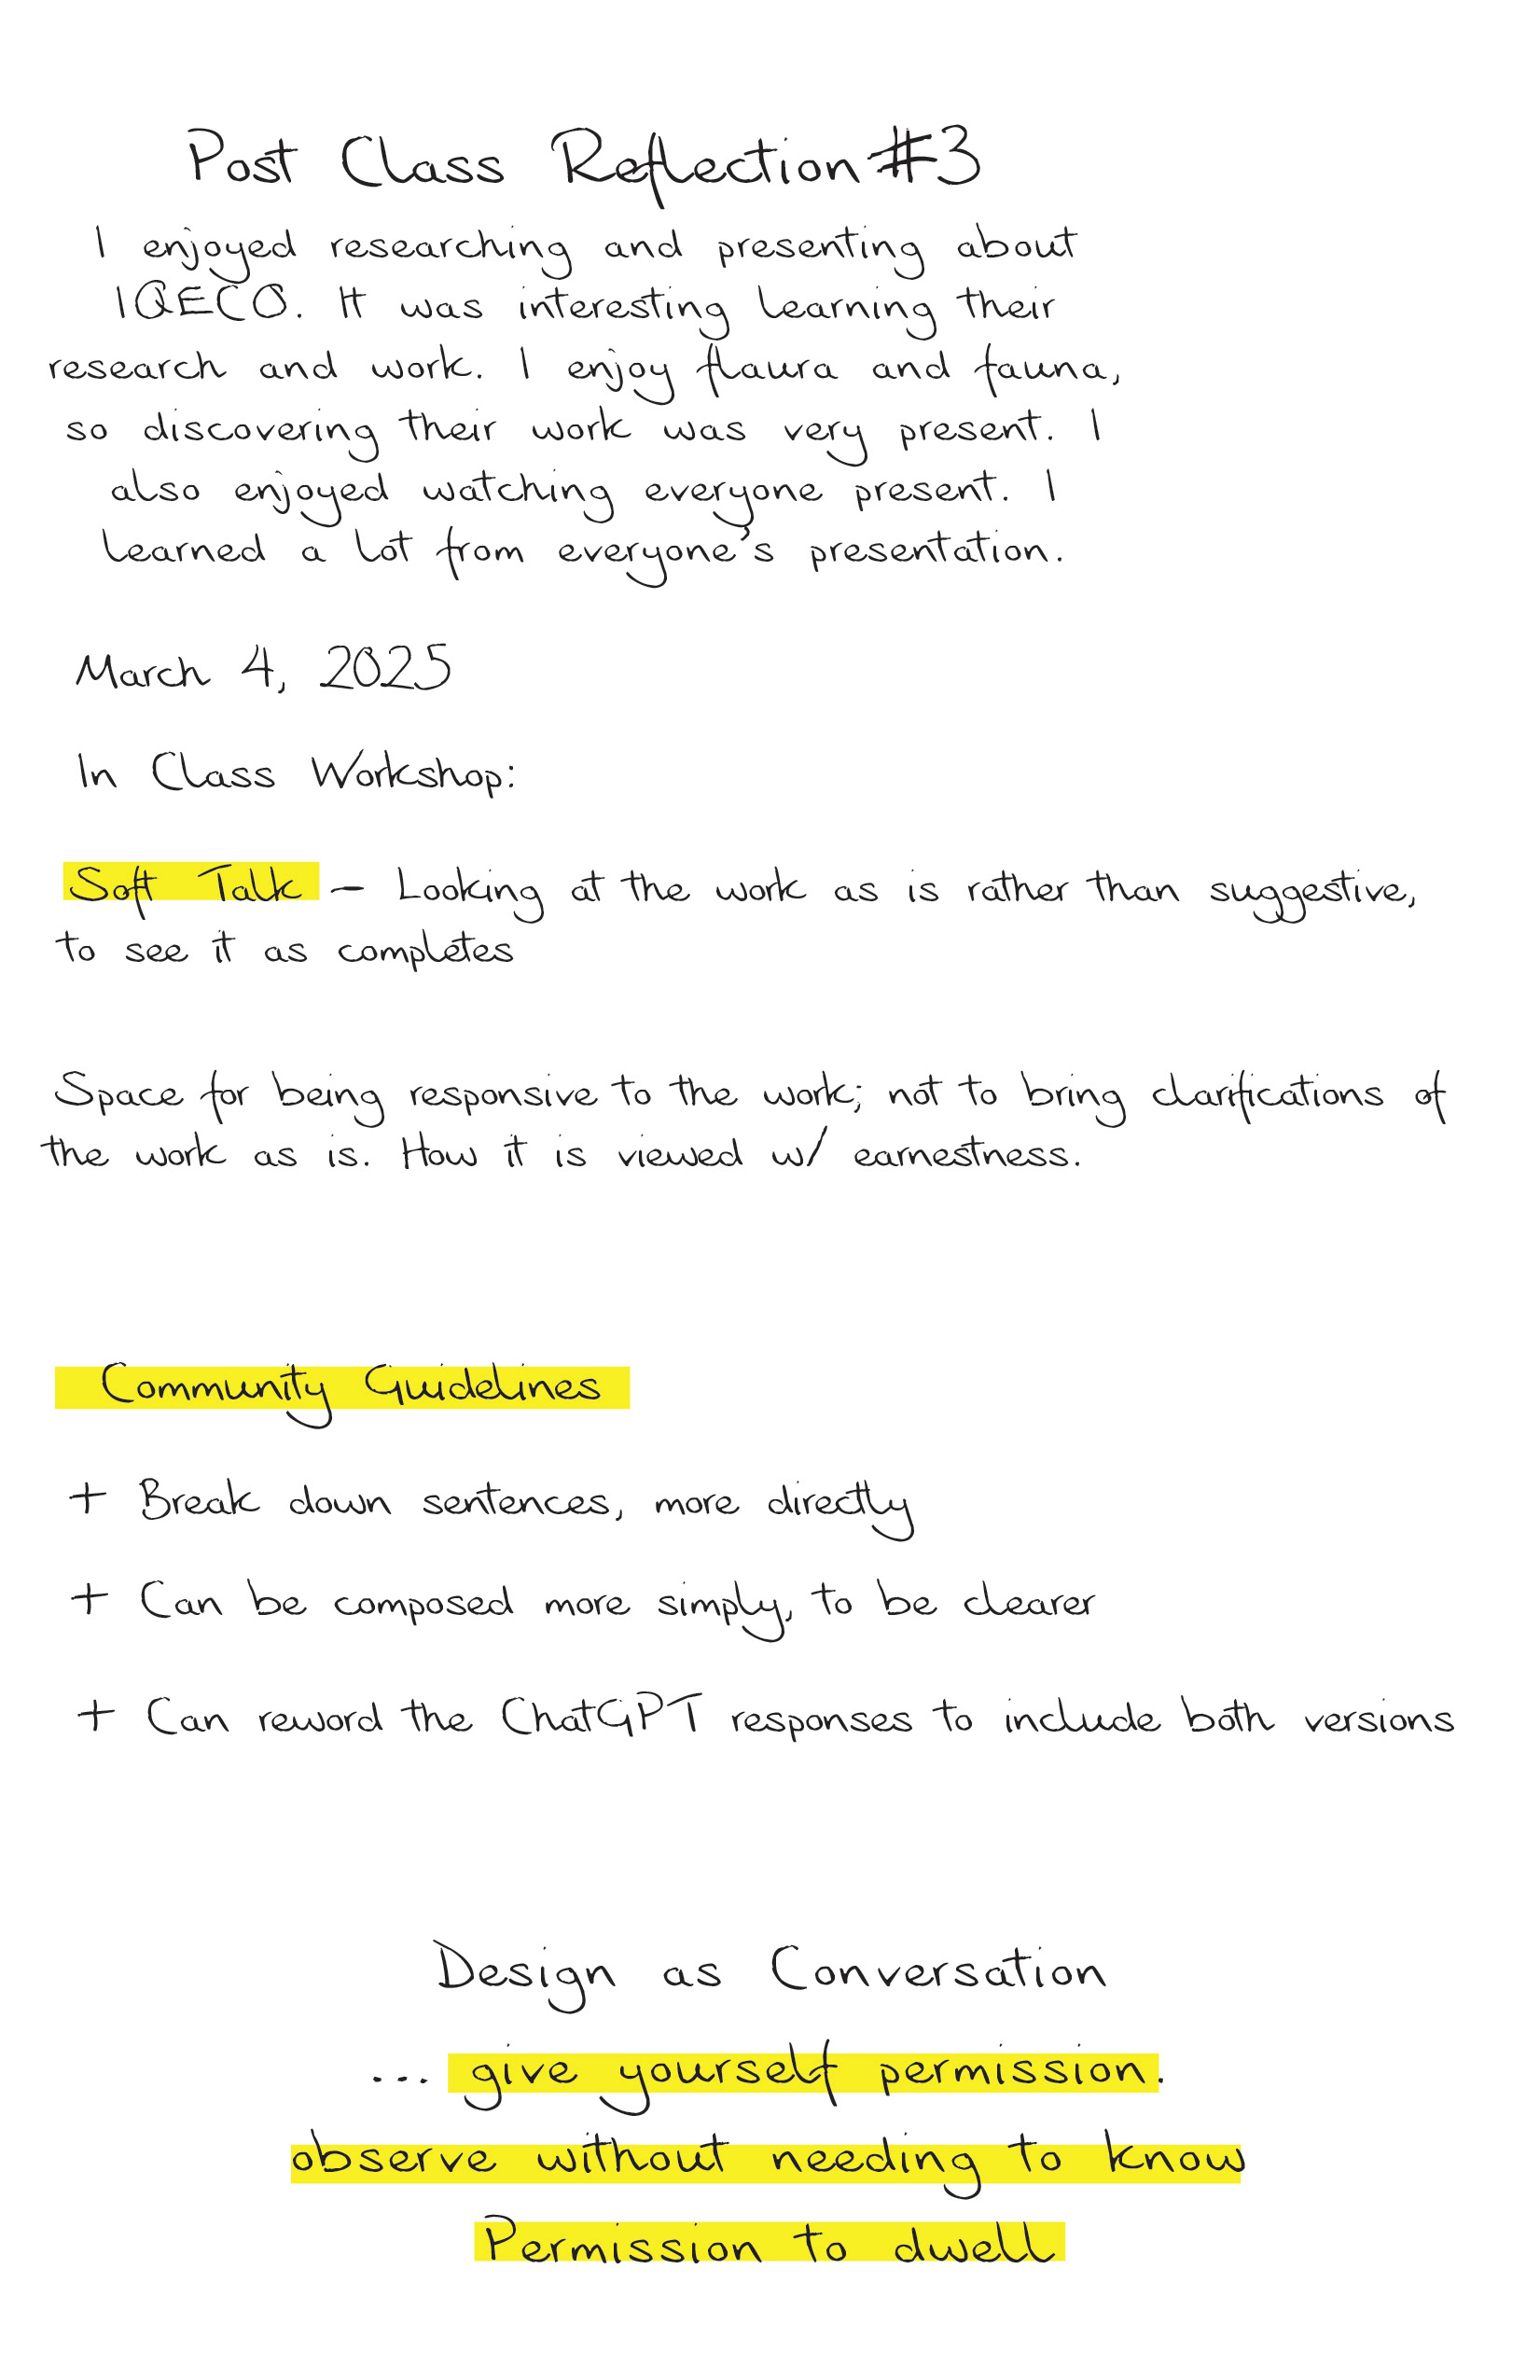 Post Class Reflection #3
I enjoyed researching and presenting about
IQECO. It was interesting learning their
research and work. I enjoy flaura and fauna,
so discovering their work was very present. I
also enjoyed watching everyone present. I
learned a lot from everyone's presentation.
March 4, 2025
In Class Workshop:
Soft Talk – Looking at the work as is rather than suggestive,
to see it as completes
Space for being responsive to the work; not to bring clarifications of
the work as is. How it is viewed w/ earnestness.
Community Guidelines
+ Break down sentences, more directly
+ Can be composed more simply, to be clearer
+ Can reword the ChatGPT responses to include both versions
Design as Conversation
... give yourself permission.
observe without needing to know
Permission to dwell